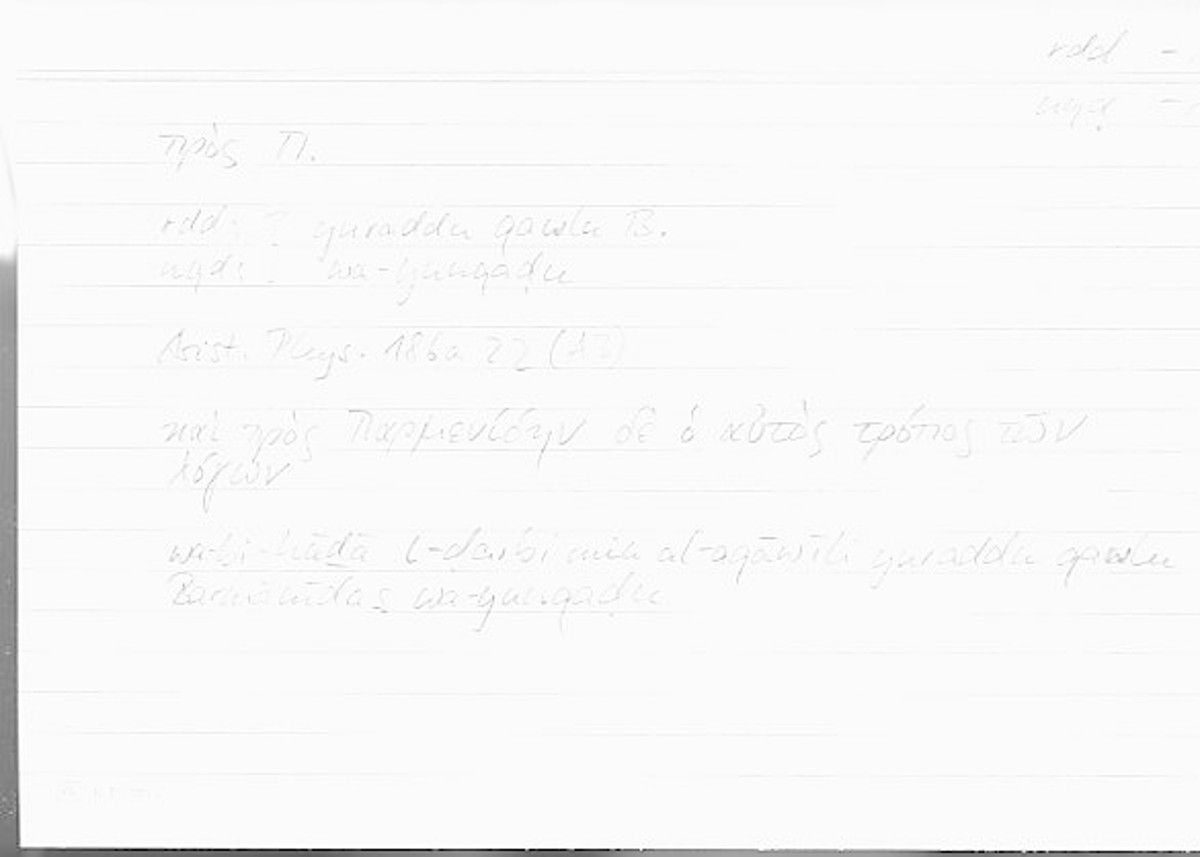 rdd -
nqḍ -
πρὸς Π.
rdd: yuraddu qawlu B.
nqḍ: wa-yunqaḍu
Arist. Phys. 186a 22 (A3)
καὶ πρὸς Παρμενίδην δὲ ὁ αὐτὸς τρόπος τῶν
λόγων
wa-bi-hāḏā l-ḍarbi min al-aqāwīli yuraddu qawlu
Barmānīdas wa-yunqaḍu